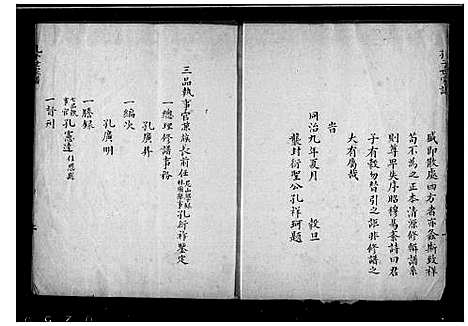 戚即散處四方者亦螽斯致祥
苟不為之正本清源修輯譜系
則尊卑失序昭穆易紊詩曰君
子有穀詒孫引之詎非修譜之
大有厲哉
峕
同治九年夏月 穀旦
襲封衍聖公孔祥珂題
三品執事官兼族長前任 孔衍祥鑒定
一總理修譜事務
孔廣昇
一編次
孔廣明
一謄錄
七品執事官孔憲達
一督刊